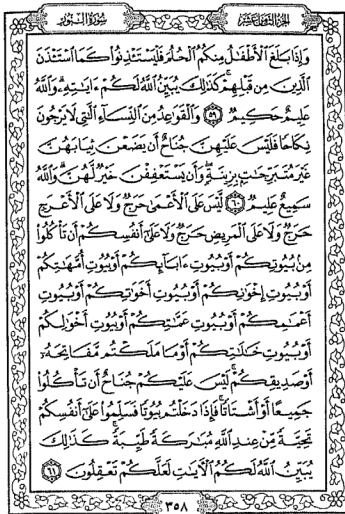 سُورَةُ النُّورِ الجُزْءُ الثَّامِنُ عَشَرَ
وَإِذَا بَلَغَ ٱلْأَطْفَٰلُ مِنكُمُ ٱلْحُلُمَ فَلْيَسْتَـْٔذِنُوا۟ كَمَا ٱسْتَـْٔذَنَ
ٱلَّذِينَ مِن قَبْلِهِمْ ۚ كَذَٰلِكَ يُبَيِّنُ ٱللَّهُ لَكُمْ ءَايَٰتِهِۦ ۗ وَٱللَّهُ
عَلِيمٌ حَكِيمٌ ٥٩ وَٱلْقَوَٰعِدُ مِنَ ٱلنِّسَآءِ ٱلَّٰتِى لَا يَرْجُونَ
نِكَاحًا فَلَيْسَ عَلَيْهِنَّ جُنَاحٌ أَن يَضَعْنَ ثِيَابَهُنَّ
غَيْرَ مُتَبَرِّجَٰتٍۭ بِزِينَةٍ ۖ وَأَن يَسْتَعْفِفْنَ خَيْرٌ لَّهُنَّ ۗ وَٱللَّهُ
سَمِيعٌ عَلِيمٌ ٦٠ لَّيْسَ عَلَى ٱلْأَعْمَىٰ حَرَجٌ وَلَا عَلَى ٱلْأَعْرَجِ
حَرَجٌ وَلَا عَلَى ٱلْمَرِيضِ حَرَجٌ وَلَا عَلَىٰٓ أَنفُسِكُمْ أَن تَأْكُلُوا۟
مِنۢ بُيُوتِكُمْ أَوْ بُيُوتِ ءَابَآئِكُمْ أَوْ بُيُوتِ أُمَّهَٰتِكُمْ
أَوْ بُيُوتِ إِخْوَٰنِكُمْ أَوْ بُيُوتِ أَخَوَٰتِكُمْ أَوْ بُيُوتِ
أَعْمَٰمِكُمْ أَوْ بُيُوتِ عَمَّٰتِكُمْ أَوْ بُيُوتِ أَخْوَٰلِكُمْ
أَوْ بُيُوتِ خَٰلَٰتِكُمْ أَوْ مَا مَلَكْتُم مَّفَاتِحَهُۥٓ
أَوْ صَدِيقِكُمْ ۚ لَيْسَ عَلَيْكُمْ جُنَاحٌ أَن تَأْكُلُوا۟
جَمِيعًا أَوْ أَشْتَاتًا ۚ فَإِذَا دَخَلْتُم بُيُوتًا فَسَلِّمُوا۟ عَلَىٰٓ أَنفُسِكُمْ
تَحِيَّةً مِّنْ عِندِ ٱللَّهِ مُبَٰرَكَةً طَيِّبَةً ۚ كَذَٰلِكَ
يُبَيِّنُ ٱللَّهُ لَكُمُ ٱلْـَٔايَٰتِ لَعَلَّكُمْ تَعْقِلُونَ ٦١
٣٥٨